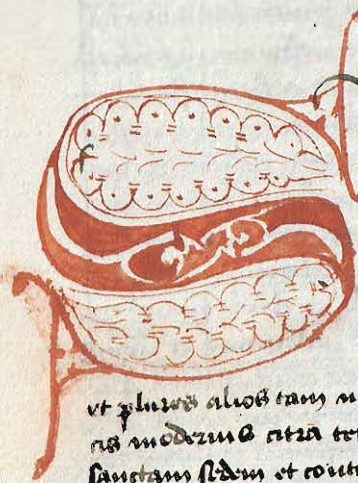 S
ut plures alios tam
cis modernis citra
sanctam sedem et